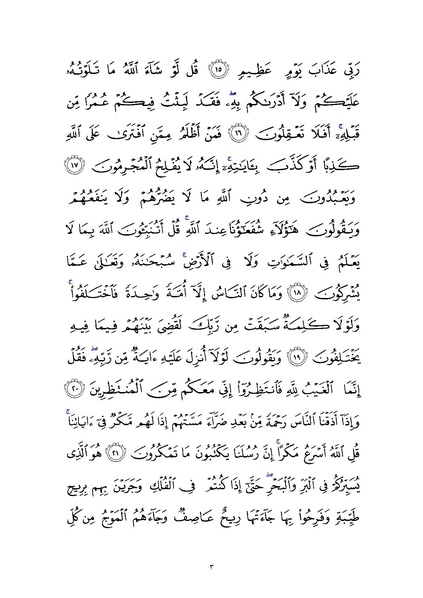 رَبِّي عَذَابَ يَوْمٍ عَظِيمٍ ١٥ قُل لَّوْ شَآءَ ٱللَّهُ مَا تَلَوْتُهُۥ
عَلَيْكُمْ وَلَآ أَدْرَىٰكُم بِهِۦ ۖ فَقَدْ لَبِثْتُ فِيكُمْ عُمُرًا مِّن
قَبْلِهِۦٓ ۚ أَفَلَا تَعْقِلُونَ ١٦ فَمَنْ أَظْلَمُ مِمَّنِ ٱفْتَرَىٰ عَلَى ٱللَّهِ
كَذِبًا أَوْ كَذَّبَ بِـَٔايَـٰتِهِۦٓ ۚ إِنَّهُۥ لَا يُفْلِحُ ٱلْمُجْرِمُونَ ١٧
وَيَعْبُدُونَ مِن دُونِ ٱللَّهِ مَا لَا يَضُرُّهُمْ وَلَا يَنفَعُهُمْ
وَيَقُولُونَ هَـٰٓؤُلَآءِ شُفَعَـٰٓؤُنَا عِندَ ٱللَّهِ ۚ قُلْ أَتُنَبِّـُٔونَ ٱللَّهَ بِمَا لَا
يَعْلَمُ فِي ٱلسَّمَـٰوَٰتِ وَلَا فِي ٱلْأَرْضِ ۚ سُبْحَـٰنَهُۥ وَتَعَـٰلَىٰ عَمَّا
يُشْرِكُونَ ١٨ وَمَا كَانَ ٱلنَّاسُ إِلَّآ أُمَّةً وَٰحِدَةً فَٱخْتَلَفُوا۟ ۚ
وَلَوْلَا كَلِمَةٌ سَبَقَتْ مِن رَّبِّكَ لَقُضِيَ بَيْنَهُمْ فِيمَا فِيهِ
يَخْتَلِفُونَ ١٩ وَيَقُولُونَ لَوْلَآ أُنزِلَ عَلَيْهِ ءَايَةٌ مِّن رَّبِّهِۦ ۖ فَقُلْ
إِنَّمَا ٱلْغَيْبُ لِلَّهِ فَٱنتَظِرُوٓا۟ إِنِّي مَعَكُم مِّنَ ٱلْمُنتَظِرِينَ ٢٠
وَإِذَآ أَذَقْنَا ٱلنَّاسَ رَحْمَةً مِّنۢ بَعْدِ ضَرَّآءَ مَسَّتْهُمْ إِذَا لَهُم مَّكْرٌ فِيٓ ءَايَاتِنَا ۚ
قُلِ ٱللَّهُ أَسْرَعُ مَكْرًا ۚ إِنَّ رُسُلَنَا يَكْتُبُونَ مَا تَمْكُرُونَ ٢١ هُوَ ٱلَّذِي
يُسَيِّرُكُمْ فِي ٱلْبَرِّ وَٱلْبَحْرِ ۖ حَتَّىٰٓ إِذَا كُنتُمْ فِي ٱلْفُلْكِ وَجَرَيْنَ بِهِم بِرِيحٍ
طَيِّبَةٍ وَفَرِحُوا۟ بِهَا جَآءَتْهَا رِيحٌ عَاصِفٌ وَجَآءَهُمُ ٱلْمَوْجُ مِن كُلِّ
٣